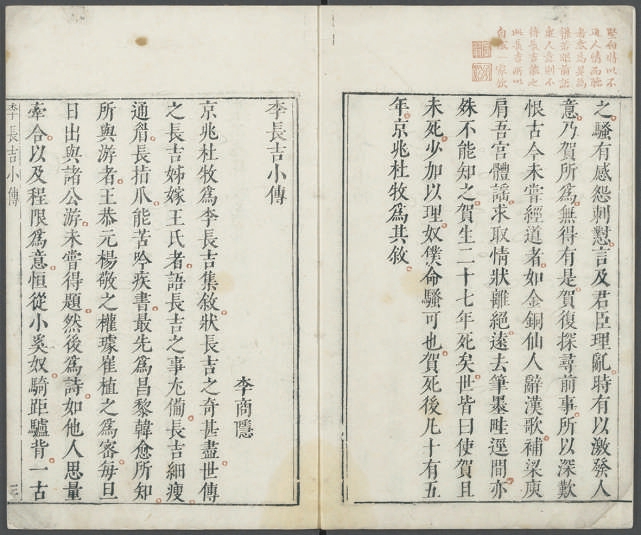 之騷有感怨刺懟言及君臣理亂時有以激發人
意乃賀所爲無得有是賀復探尋前事所以深歎
恨古今未嘗經道者如金銅仙人辭漢歌補梁庾
肩吾宮體謠求取情狀離絕遠去筆墨畦逕間亦
殊不能知之賀生二十七年死矣世皆曰使賀且
未死少加以理奴僕命騷可也賀死後凡十有五
年京兆杜牧爲其敘
李長吉小傳
李商隱
京兆杜牧爲李長吉集敘狀長吉之奇甚盡世傳
之長吉姊嫁王氏者語長吉之事尤備長吉細瘦
通眉長指爪能苦吟疾書最先爲昌黎韓愈所知
所與游者王恭元楊敬之權璩崔植之爲密每旦
日出與諸公游未嘗得題然後爲詩如他人思量
牽合以及程限爲意恒從小奚奴騎距驢背一古
李長吉小傳
三